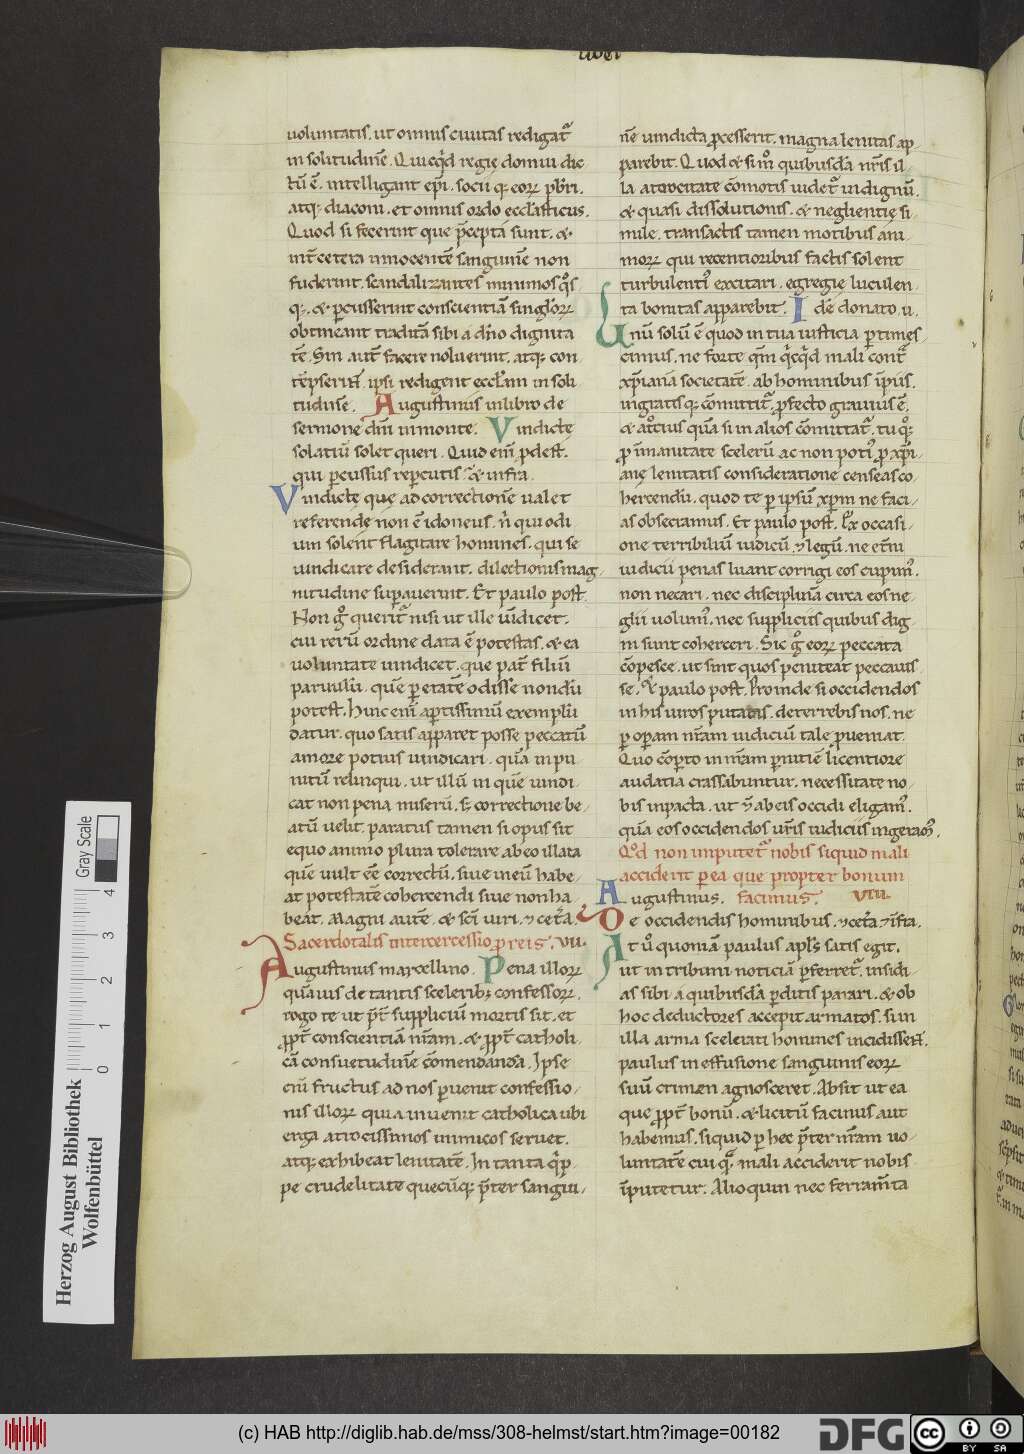 liber
uoluntatis. ut omnis ciuitas redigat᷑
in solitudinē. Quicq̇d regię domui dic
tū ē. intelligant ep̄i. socii q; eoꝝ p̄bri.
atq; diaconi. et omnis ordo eccl̄asticus.
Quod si fecerint que p̄cepta sunt. &
int̄ cetera innocentē sanguinē non
fuderint. scandalizantes minimos quos
q;. & ꝑcusserint conscientiā singloꝝ
obtineant traditā sibi a dn̄o dignita
tē. Sin aut̄ facere noluerint. atq; con
tēpserin̄t. ipsi redigent eccl̄am in soli
tudinē. Augustinus in libro de
sermone dn̄i in monte. Vindictę
solatiū solet queri. Quid eni̅ ꝓdest.
qui ꝑcussus reꝑcutis. & infra.
Vindictę quę ad correctionē ualet
referendę non ē idoneus. n̄ qui odi
um solent flagitare homines. qui se
uindicare desiderant. dilectionis mag
nitudine suꝑauerint. Et paulo post.
Non gͦ querit᷑ nisi ut ille uīdicet.
cui rerū ordine data ē potestas. & ea
uoluntate uindicet. que pat̄ filiū
paruulū. quē ꝑ etatē odisse nondū
potest. Hinc eni̅ aꝑtissimū exemplū
datur. quo satis apparet posse peccatū
amore potius uindicari. quā inpu
nitū relinqui. ut illū in quē uindi
cat non pena miserū. s; correctione be
atū uelit. paratus tamen si opus sit
equo animo plura tolerare ab eo illata
quē uult eē correctū. siue in eū habe
at potestatē cohercendi siue non ha
beat. Magni autē. & sc̄i uiri. ⁊ cet̄a.
Sacerdotalis intercessio ꝓ reis. vii.
Augustinus marcellino. Pena illoꝝ
quāuis de tantis sceleribꝫ confessoꝝ.
rogo te ut p̄t̄ suppliciū mortis sit. et
ꝓpt̄ conscientiā nr̄am. & ꝓpt̄ catholi
cā consuetudinē cōmendandā. Ipse
eni̅ fructus ad nos ꝑuenit confessio
nis illoꝝ quia inuenit catholica ubi
erga atrocissimos inimicos seruet.
atq; exhibeat lenitatē. In tanta q̇p
pe crudelitate quecūq; p̄ter sangui
nē uindicta ꝓcesserit. magna lenitas ap
parebit. Quod & si mͦ quibusdā nr̄is il
la atrocitate cōmotis uidet᷑ indignū.
& quasi dissolutionis. & neglientię si
mile. transactis tamen motibus ani
moꝝ qui recentioribus factis solent
turbulenti᷒ excitari. egregię luculen
ta bonitas apparebit. Idē donato. u.
Unū solū ē quod in tua iusticia ꝑtimes
cimus. ne forte qm̄ q̇cq̇d mali cont᷑
xp̄ianā societatē. ab hominibus īpiis.
ingratis q; cōmittit᷑. ꝓfecto grauius ē.
& atͦcius quā si in alios cōmittat᷑. tu qͦq;
ꝓ īmanitate scelerū ac non poti᷒ ꝓ xp̄i
anę lenitatis consideratione censeas co
hercendū. quod te ꝑ ipsum xp̄m ne faci
as obsecramus. Et paulo post. Ex occasi
one terribiliū iudicū. ⁊ legū. ne et̄ni
iudicii penas luant corrigi eos cupim᷒.
non necari. nec disciplinā circa eos ne
glii uolum᷒. nec suppliciis quibus dig
ni sunt coherceri. Sic gͦ eoꝝ peccata
cōpesce. ut sint quos peniteat peccauis
se. Et paulo post. Proinde si occidendos
in his uiros putatis. deterrebis nos. ne
ꝑ oꝑam nr̄am iudiciū tale ꝓueniat.
Quo cōꝑto in nr̄am ꝑnitiē licentiore
audatia crassabuntur. necessitate no
bis inpacta. ut ꝯ ab eis occidi eligam᷒.
quā eos occidendos ur̄is iudiciis ingeram᷒.
Qͦd non imputet᷑ nobis siquid mali
acciderit ꝑ ea que propter bonum
Augustinus. facimus. viii.
De occidendis hominibus. ⁊ cet̄a. ⁊ īfra.
At uͦ quoniā paulus apls̄ satis egit.
ut in tribuni noticiā ꝑferret᷑. insidi
as sibi a quibusdā ꝑditis parari. & ob
hoc deductores accepit armatos. si in
illa arma scelerati homines incidissent̄.
paulus in effusione sanguinis eoꝝ
suū crimen agnosceret. Absit ut ea
que ꝓpt̄ bonū. & licitū facimus aut
habemus. siquid ꝑ hec p̄ter nr̄am uo
luntatē cui q̄ mali acciderit nobis
īputetur. Alioquin nec ferram̄ta
Gray Scale
4 3 2 1 0
Herzog August Bibliothek
Wolfenbüttel
(c) HAB http://diglib.hab.de/mss/308-helmst/start.htm?image=00182
DFG
cc BY SA